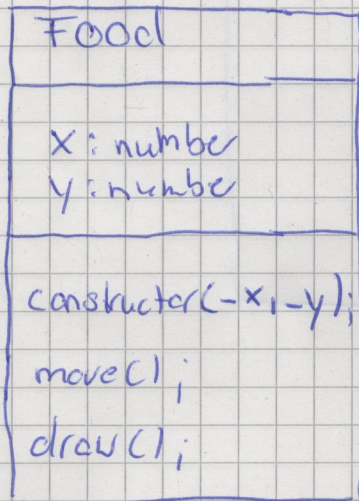 Food
x : number
y : number
constructor(_x, _y);
move();
draw();